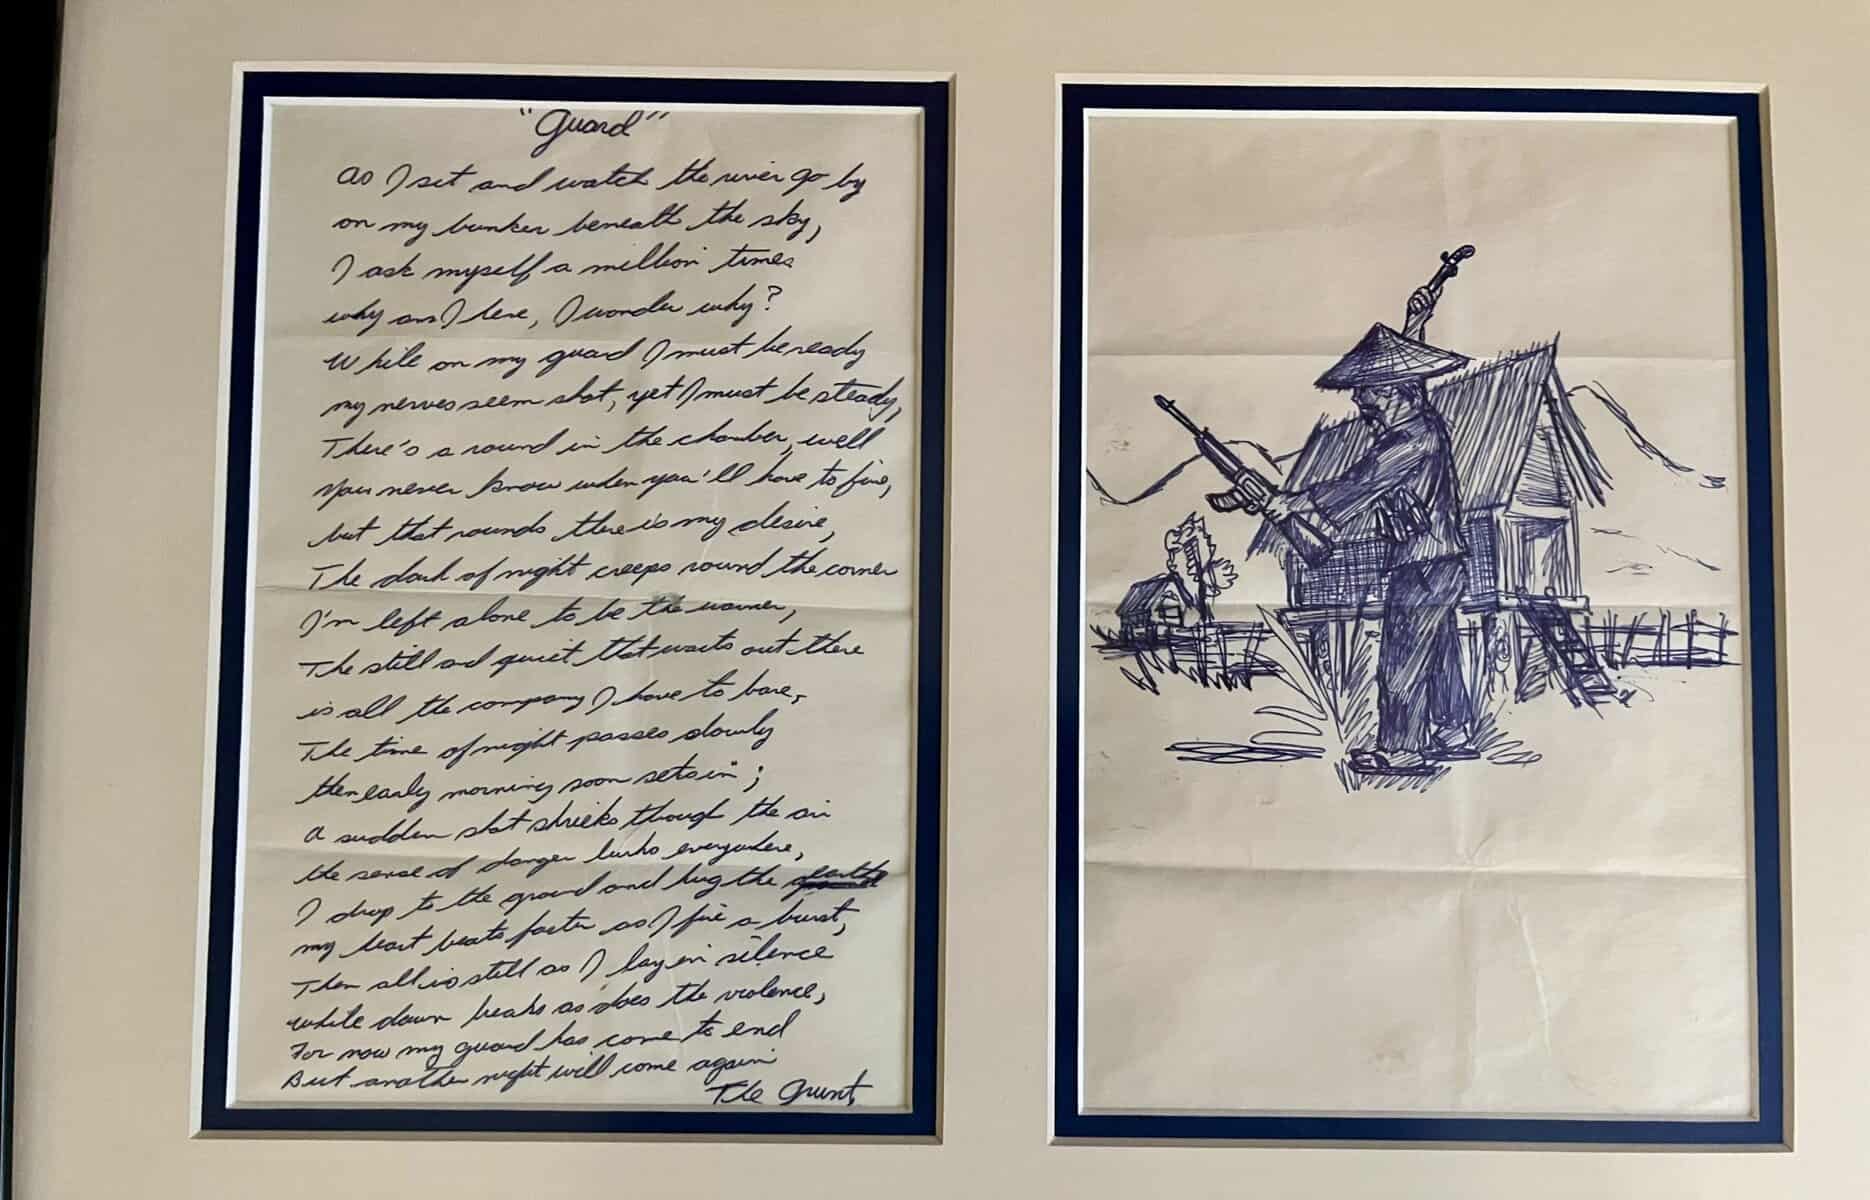 "Guard"
As I set and watch the river go by
on my bunker beneath the sky,
I ask myself a million times
why am I here, I wonder why?
While on my guard I must be ready
my nerves seem shot, yet I must be steady,
There's a round in the chamber, well
you never know when you'll have to fire,
but that rounds there is my desire,
The dark of night creeps round the corner
I'm left alone to be the warner,
The still and quiet that waits out there
is all the company I have to bare,
The time of night passes slowly
then early morning soon sets in;
A sudden shot shrieks though the air
the sense of danger lurks everywhere,
I drop to the ground and hug the earth
my heart beats faster as I fire a burst,
Then all is still as I lay in silence
while dawn breaks as does the violence,
For now my guard has come to end
But another night will come again
The Grunt,